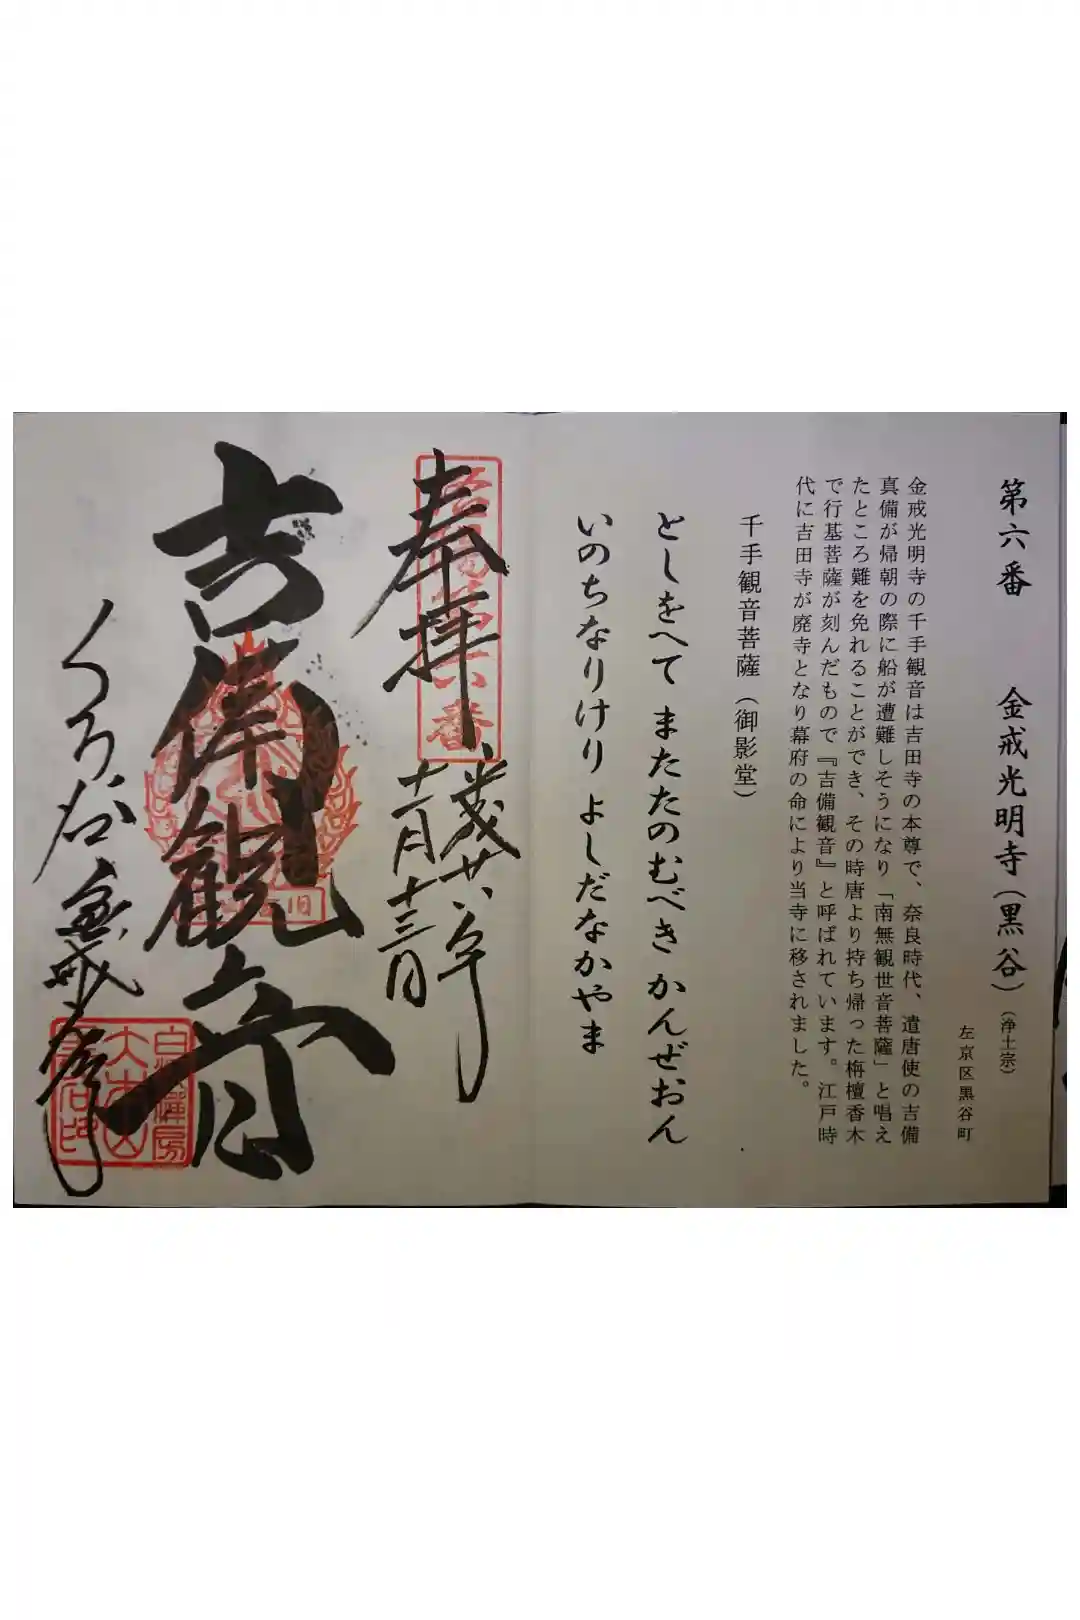 第六番 金戒光明寺(黒谷)(浄土宗)
左京区黒谷町
金戒光明寺の千手観音は吉田寺の本尊で、奈良時代、遣唐使の吉備
真備が帰朝の際に船が遭難しそうになり「南無観世音菩薩」と唱え
たところ難を免れることができ、その時唐より持ち帰った栴檀香木
で行基菩薩が刻んだもので『吉備観音』と呼ばれています。江戸時
代に吉田寺が廃寺となり幕府の命により当寺に移されました。
千手観音菩薩(御影堂)
としをへて またたのむべき かんぜおん
いのちなりけり よしだなかやま
奉拝
洛陽第六番
平成廿八年
十一月十三日
吉備観音
くろ谷 金戒光明寺
大本山